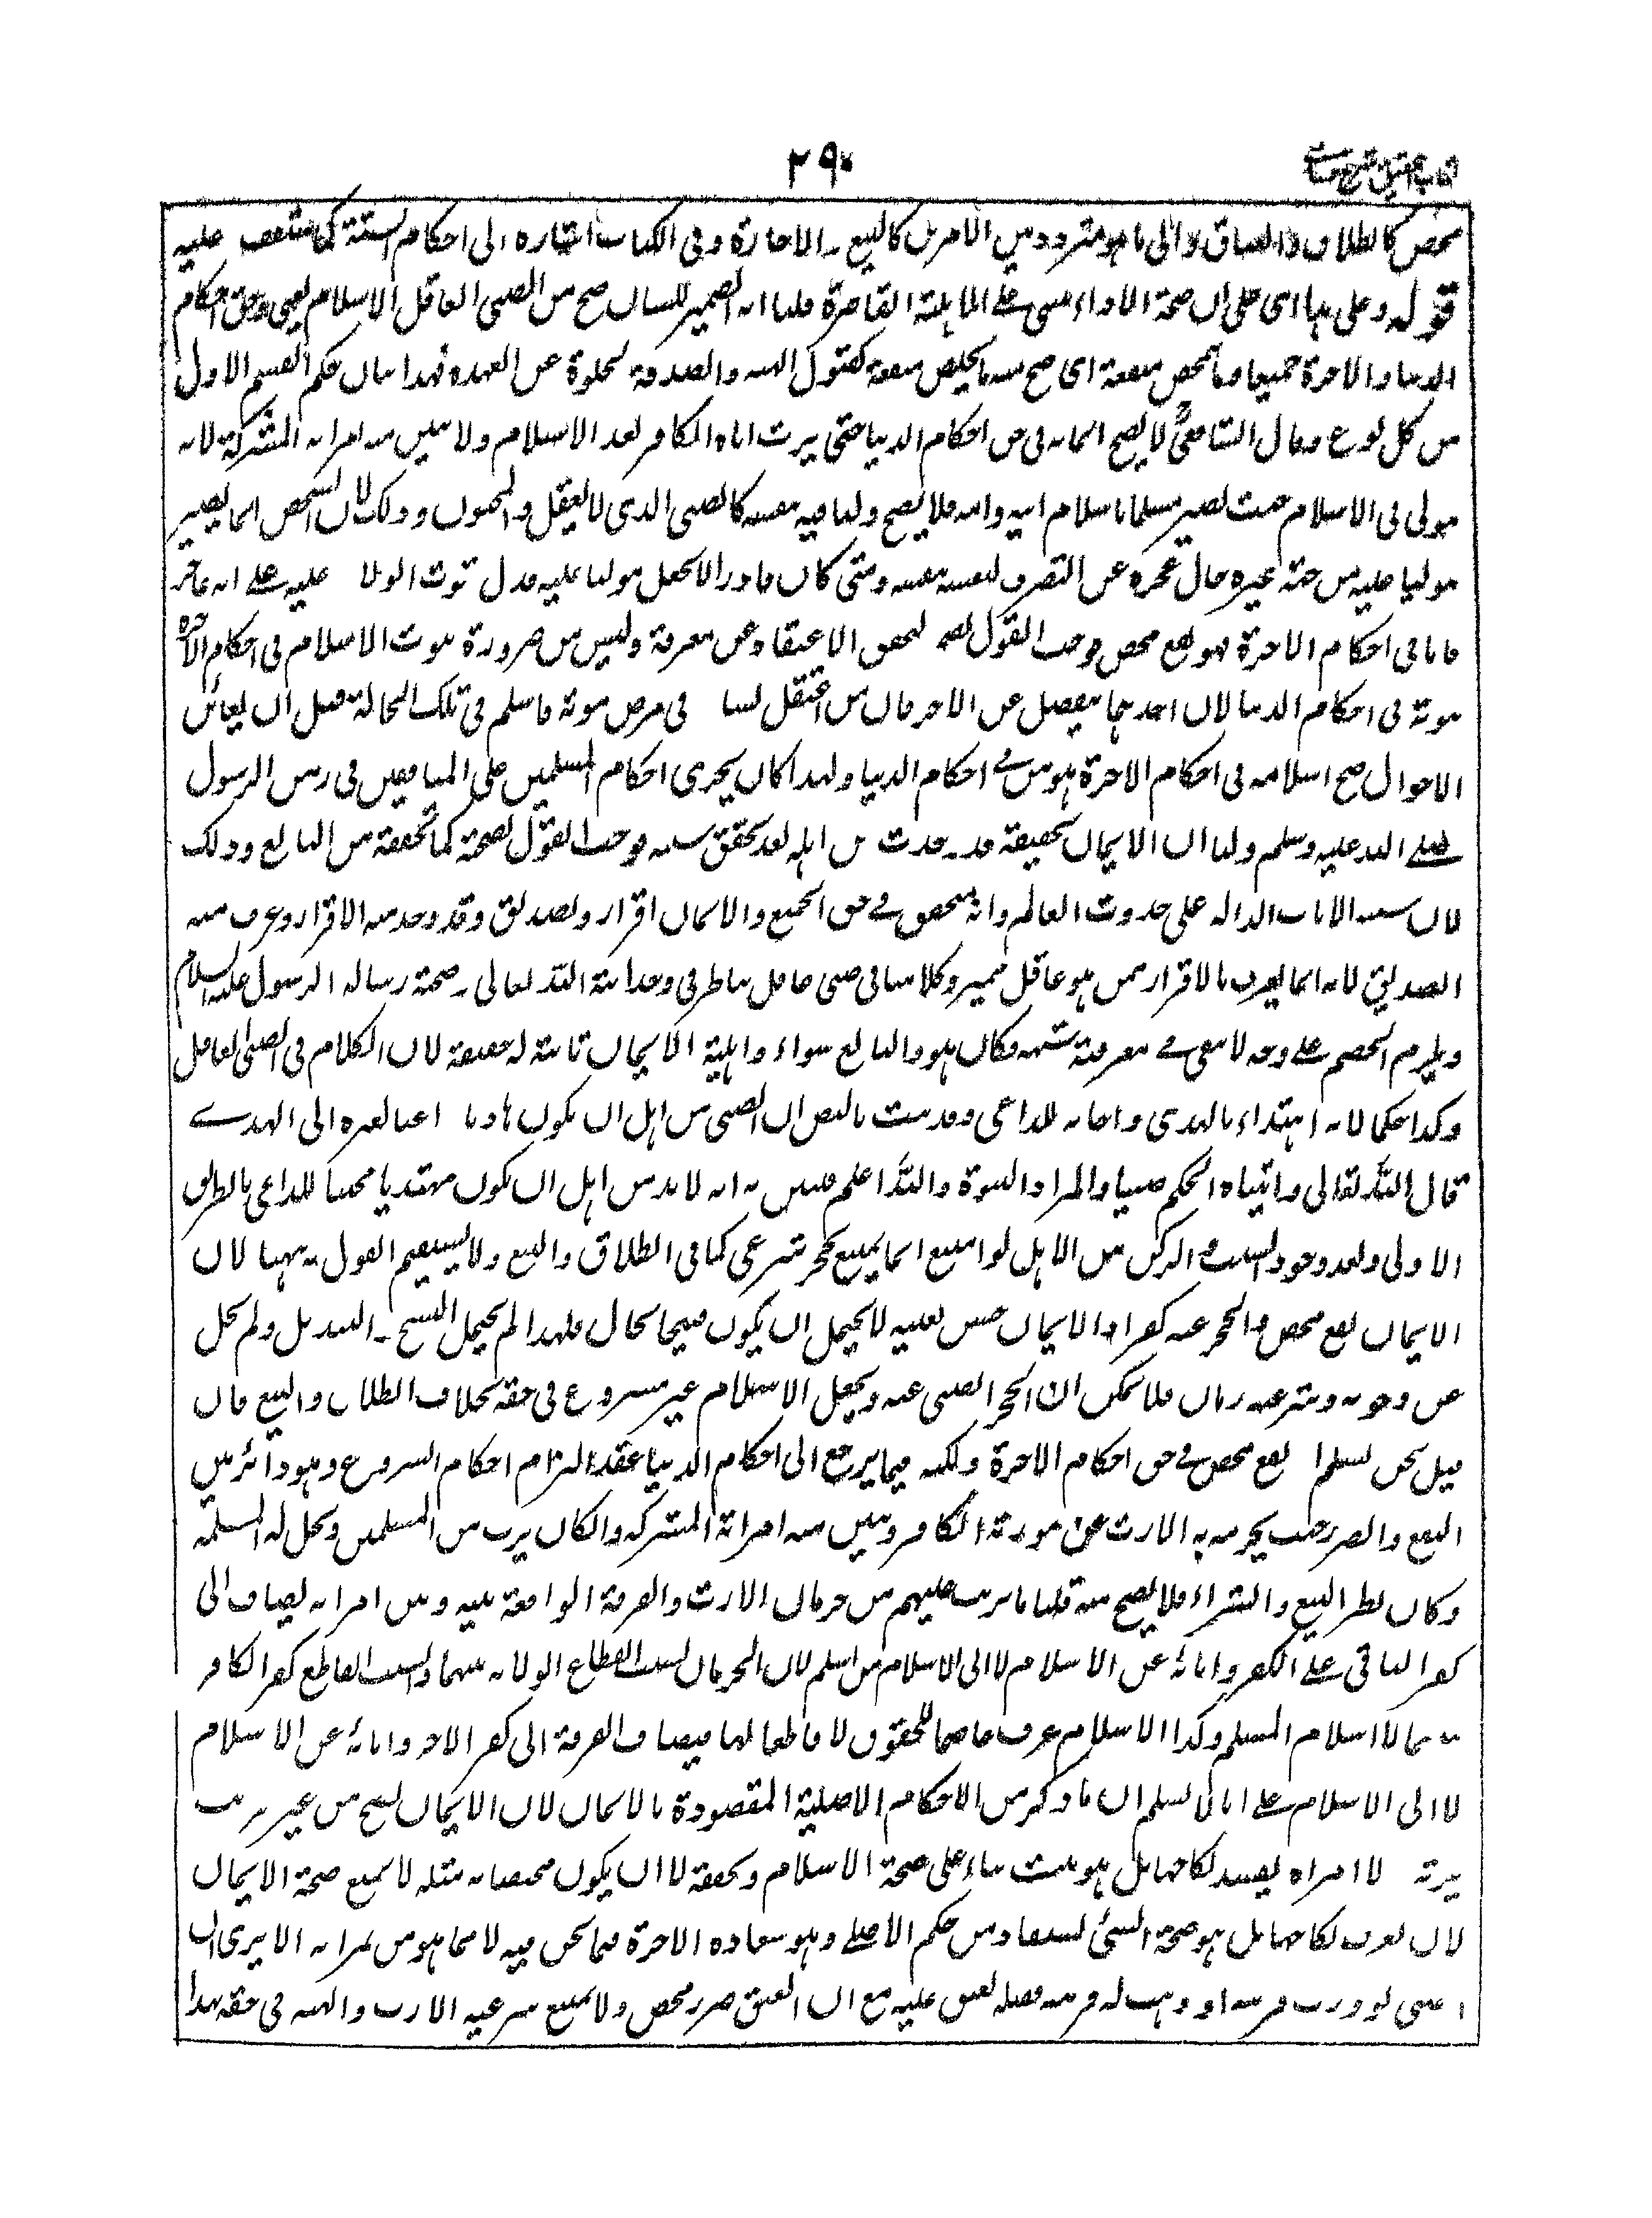 ٢٩٠
محض كالطلاق والعتاق والى ما هو متردد بين الامرين كالبيع والاجارة وفى الكتاب اشاره الى احكام الستة كما ستقف عليه
قوله وعلى هذا اى على ان صحة الاداء مبنى على الاهلية القاصرة قلنا انه الضمير للشان صح من الصبى العاقل الاسلام يعنى فى حق احكام
الدنيا والاخرة جميعا وما تمحض منفعة اى صح منه ما يخلص منفعة كقبول الهبة والصدقة لخلوه عن العهده فهذا بيان حكم القسم الاول
من كل نوع وقال الشافعىؒ لا يصح ايمانه فى حق احكام الدنيا حتى يرث اباه الكافر بعد الاسلام ولا تبين منه امراته المشركة لانه
مولى فى الاسلام حيث يصير مسلما باسلام ابيه وامه فلا يصح وليا فيه بنفسه كالصبى الذى لا يعقل والمجنون وذلك لان الشخص انما يصير
موليا عليه من جهة غيره حال عجزه عن التصرف لنفسه بنفسه ومتى كان قادرا لا يجعل موليا عليه فدل ثبوت الولا عليه على انه عاجز
فاما فى احكام الاخرة فهو نفع محض فوجب القول بصحته لتحقق الاعتقاد عن معرفة وليس من ضرورة ثبوت الاسلام فى احكام الاخرة
ثبوته فى احكام الدنيا لان احدهما ينفصل عن الاخر فان من اعتقل لسا فى مرض موته فاسلم فى تلك الحالة قبل ان يعاين
الاحوال صح اسلامه فى احكام الاخرة دون احكام الدنيا ولهذا كان يجرى احكام المسلمين على المنافقين فى زمن الرسول
صلى الله عليه وسلم ولنا ان الايمان بحقيقة قد وجدت من اهله بعد تحقق سببه فوجب القول بصحته كما تحققه من البالغ وذلك
لان سببه الايات الدالة على حدوث العالم وانه متحقق فى حق الجميع والايمان اقرار وتصديق وقد وجد منه الاقرار وعرف منه
التصديق لانه انما يعرف بالاقرار ممن هو عاقل مميز وكلامنا فى صبى عاقل يناظر فى وحدانية الله تعالى وصحة رسالة الرسول عليه السلام
ويلزم الخصم على وجه لا يبقى فى معرفته شبهه فكان هو والبالغ سواء واهلية الايمان ثابتة له حقيقة لان الكلام فى الصبى العاقل
وكذا حكما لانه اهتداء بالهدى واجابة للداعى وقد ثبت بالنص ان الصبى من اهل ان يكون هاديا داعيا لغيره الى الهدى
قال الله تعالى واتيناه الحكم صبيا والمراد النبوة والله اعلم فتبين به انه لا بد من اهل ان يكون مهتديا مجيبا للداعى بالطريق
الاولى وبعد وجود السبب والركن من الاهل لو امتنع انما يمتنع بحجر شرعى كما فى الطلاق والبيع ولا يستقيم القول به ههنا لان
الايمان نفع محض والحجر عنه كفر اذ الايمان حسن لعينه لا يحتمل ان يكون قبيحا بحال فلهذا لم يحتمل النسخ والتبديل ولم يخل
عن وجوبه وشرعيته زمان فلا يمكن ان الحجر الصبى عنه ويجعل الاسلام غير مشروع فى حقه بخلاف الطلاق والبيع فان
قيل نحن نسلم انه نفع محض فى حق احكام الاخرة ولكنه فيما يرجع الى احكام الدنيا عقد التزام احكام الشرع وهو دائر بين
النفع والضرر حيث يحرم به الارث عن مورثه الكافر وتبين منه امراته المشركه وان كان يرث من المسلمين وتحل له المسلمة
وكان نظير البيع والشراء فلا يصح منه قلنا ما يترتب عليهم من حرمان الارث والفرقة الواقعة بينه وبين امراته يضاف الى
كفر الباقى على الكفر وابائه عن الاسلام لا الى الاسلام من اسلم لان الحرمان بسبب انقطاع الولاية بينهما والسبب القاطع كفر الكافر
منهما لا اسلام المسلم وكذا الاسلام عرف عاصما للحقوق لا قاطعا لها فيضاف الفرقة الى كفر الاخر وابائه عن الاسلام
لا الى الاسلام على انا لا نسلم ان ما ذكر من الاحكام الاصلية المقصودة بالايمان لان الايمان يصح من غير
يرثه لا امراه يفسد نكاحها بل هو يثبت بناء على صحة الاسلام وتحققه لا ان يكون مختصا به مثله لا يمنع صحة الايمان
لان تعرف نكاحها بل هو صحة الشئ يستفاد من حكم الاصلى وهو سعاده الاخرة فيما نحن فيه لا مما هو من ثمراته الا يرى ان
الصبى لو ورث قريبه او وهب له قريبه فقبله يعتق عليه مع ان العتق ضرر محض ولا يمنع شرعية الارث والهبه فى حقه لهذا